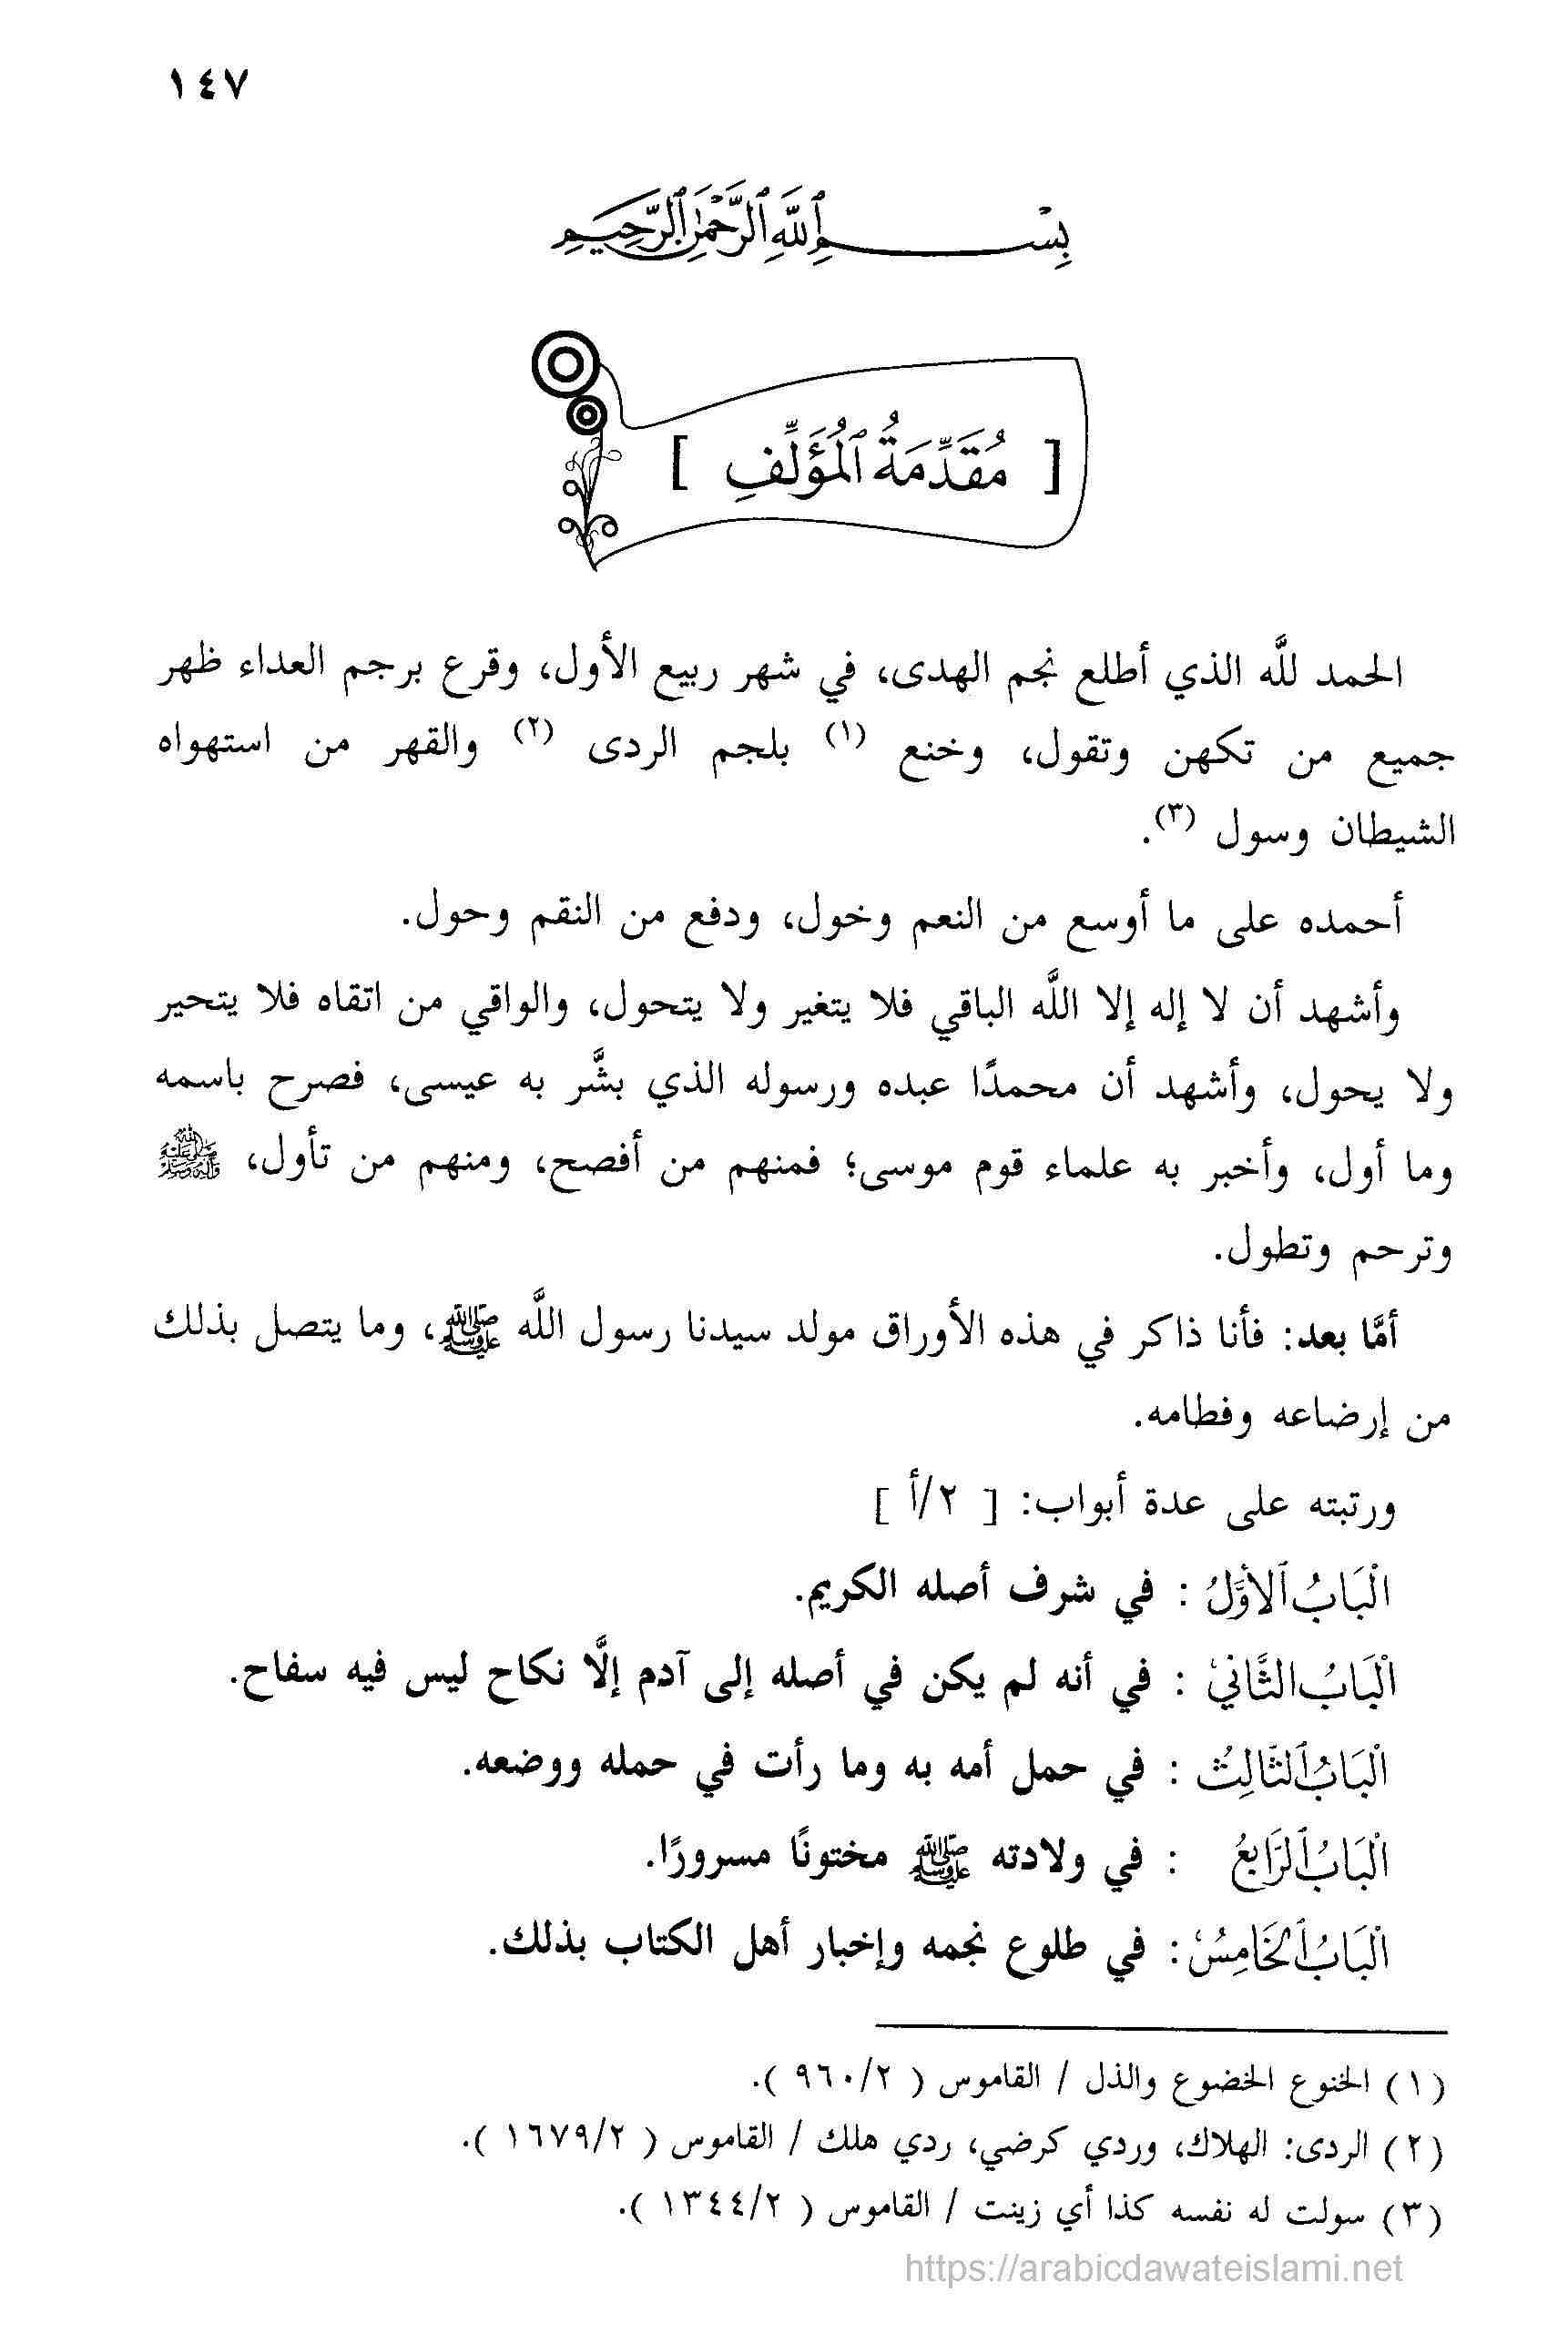 ١٤٧
بِسْمِ ٱللَّهِ ٱلرَّحْمَٰنِ ٱلرَّحِيمِ
[ مُقَدِّمَةُ ٱلْمُؤَلِّفِ ]
الحمد للَّه الذي أطلع نجم الهدى، في شهر ربيع الأول، وقرع برجم العداء ظهر
جميع من تكهن وتقول، وخنع (١) بلجم الردى (٢) والقهر من استهواه
الشيطان وسول (٣).
أحمده على ما أوسع من النعم وخول، ودفع من النقم وحول.
وأشهد أن لا إله إلا اللَّه الباقي فلا يتغير ولا يتحول، والواقي من اتقاه فلا يتحير
ولا يحول، وأشهد أن محمدًا عبده ورسوله الذي بشَّر به عيسى، فصرح باسمه
وما أول، وأخبر به علماء قوم موسى؛ فمنهم من أفصح، ومنهم من تأول، صلى الله عليه وآله وسلم
وترحم وتطول.
أمَّا بعد: فأنا ذاكر في هذه الأوراق مولد سيدنا رسول اللَّه ﷺ، وما يتصل بذلك
من إرضاعه وفطامه.
ورتبته على عدة أبواب: [ ٢/أ ]
الْبَابُ ٱلأَوَّلُ : في شرف أصله الكريم.
الْبَابُ الثَّانِي : في أنه لم يكن في أصله إلى آدم إلَّا نكاح ليس فيه سفاح.
الْبَابُ ٱلثَّالِثُ : في حمل أمه به وما رأت في حمله ووضعه.
الْبَابُ ٱلرَّابِعُ : في ولادته ﷺ مختونًا مسرورًا.
الْبَابُ ٱلْخَامِسُ : في طلوع نجمه وإخبار أهل الكتاب بذلك.
(١) الخنوع الخضوع والذل / القاموس ( ٩٦٠/٢ ).
(٢) الردى: الهلاك، وردي كرضي، ردي هلك / القاموس ( ١٦٧٩/٢ ).
(٣) سولت له نفسه كذا أي زينت / القاموس ( ١٣٤٤/٢ ).
https://arabicdawateislami.net